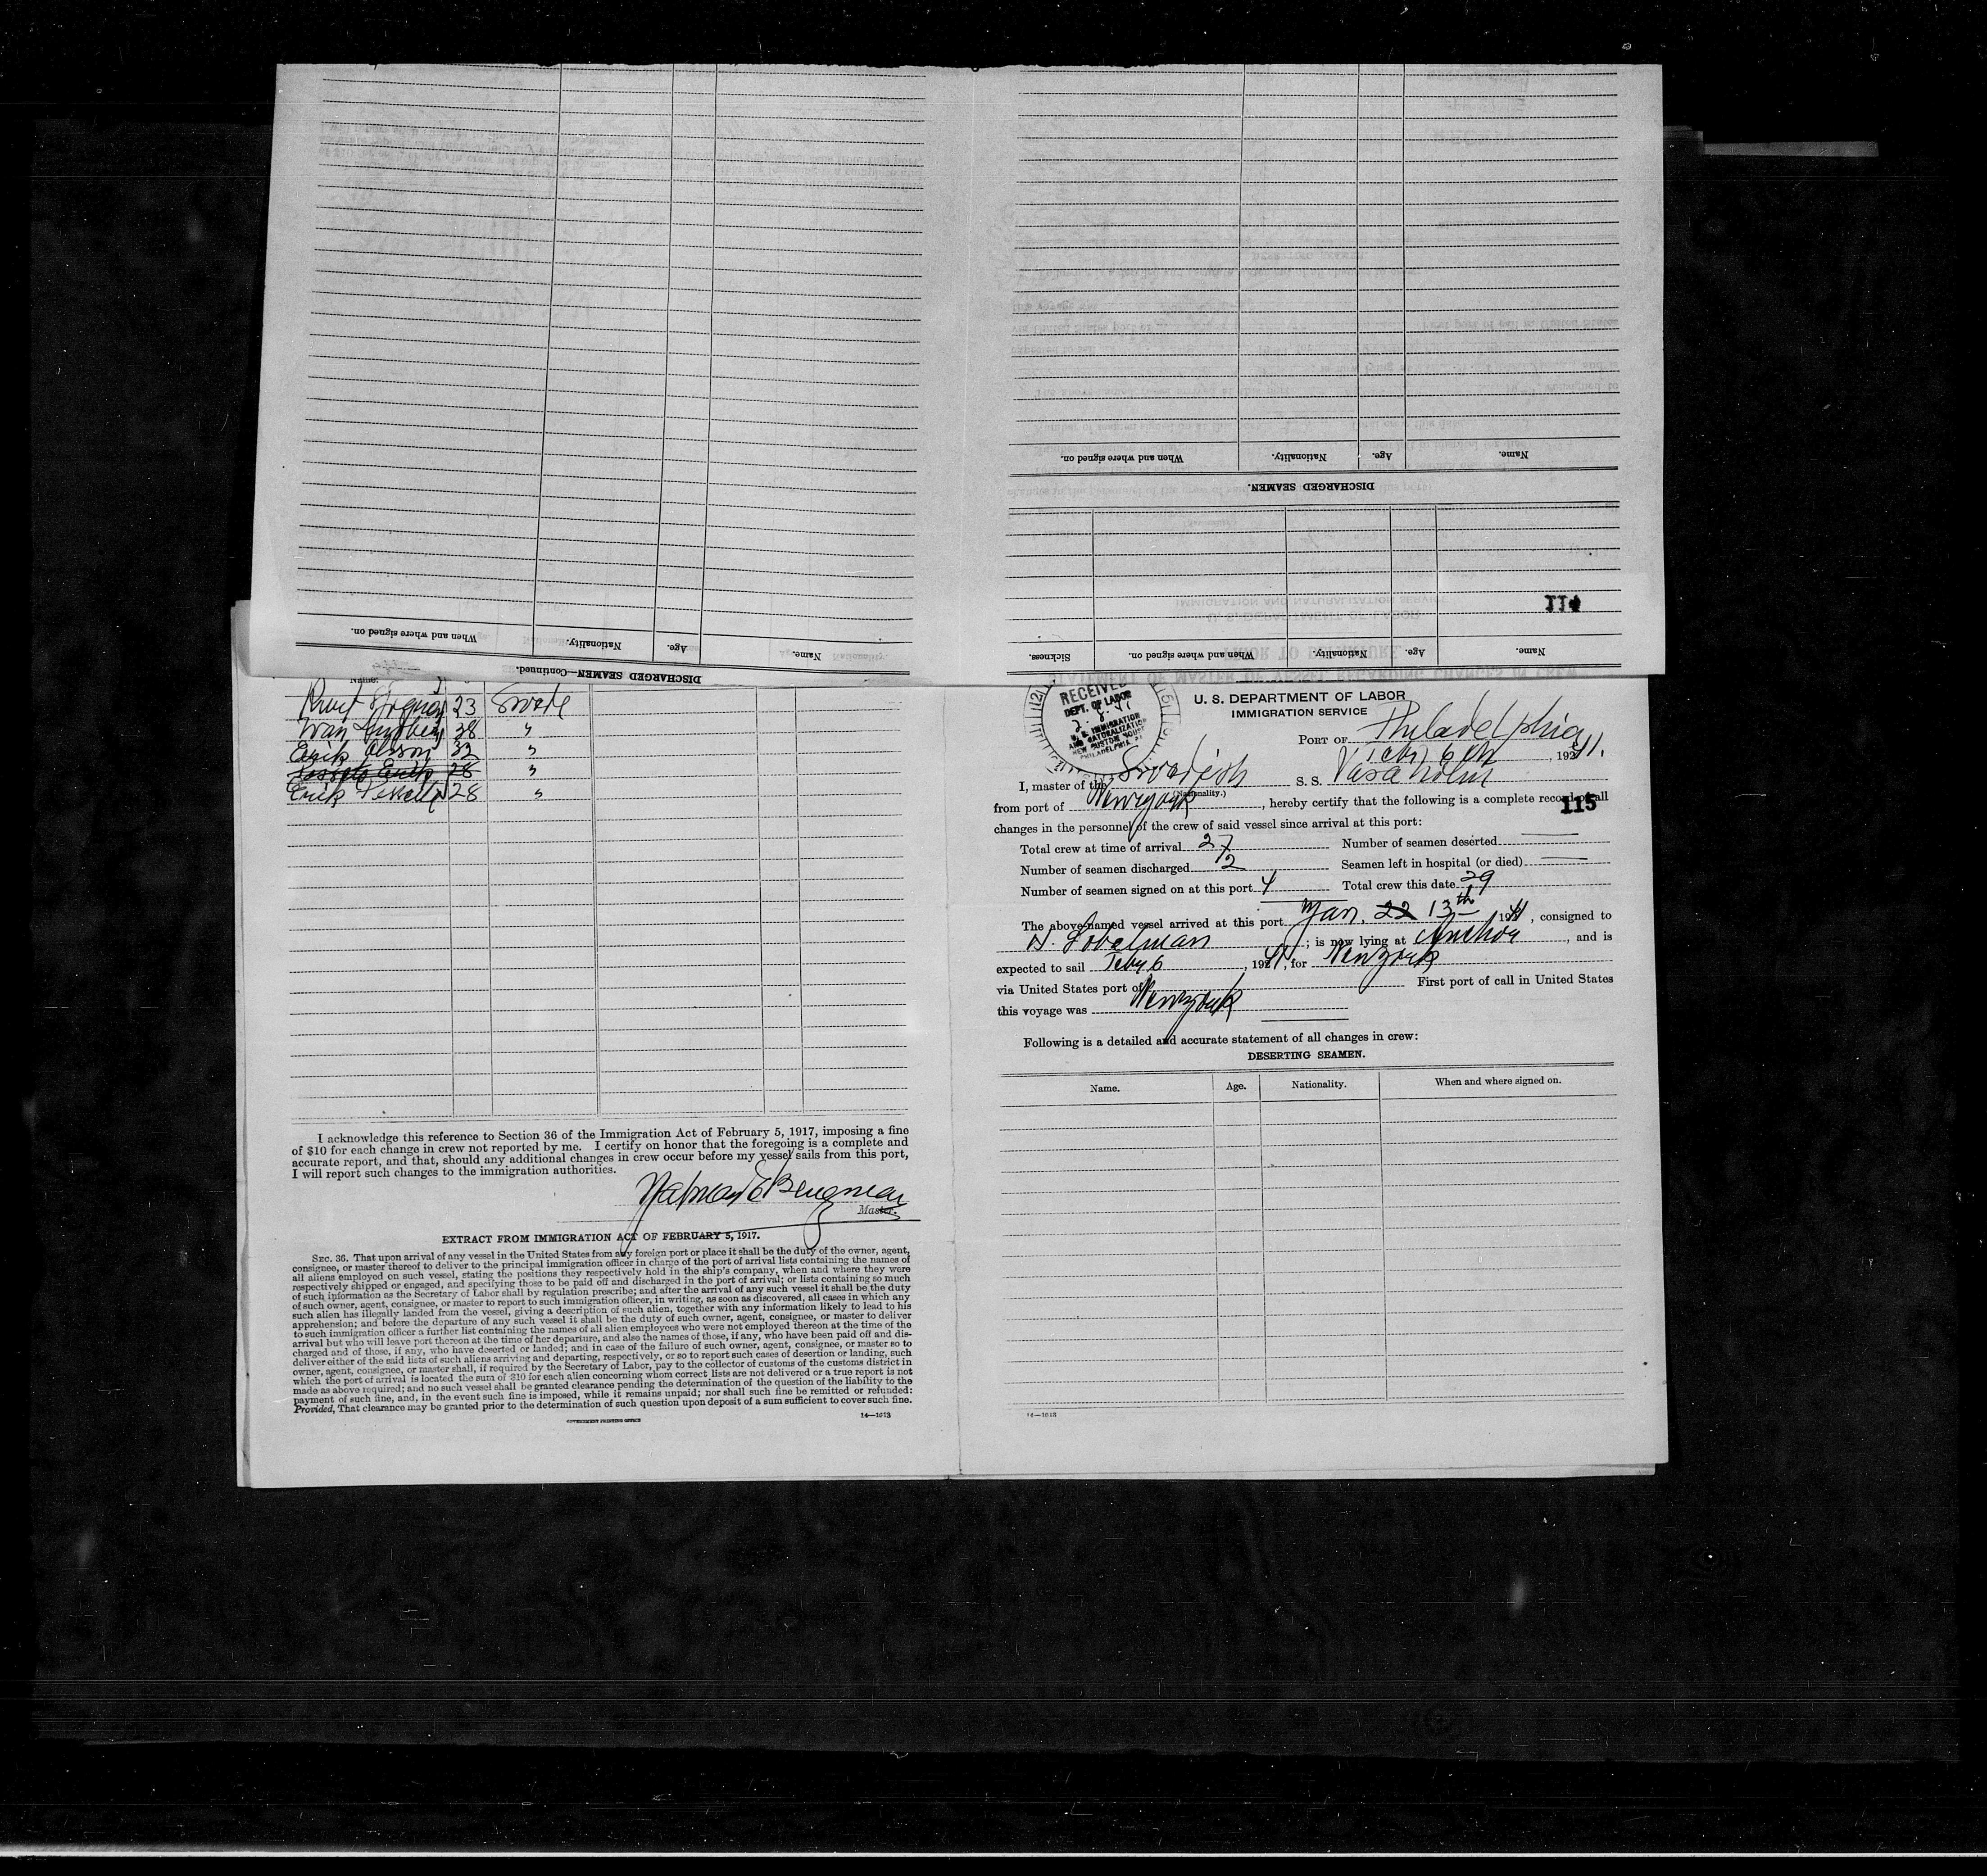 When and where signed on.
Nationality.
Age.
Name.
DISCHARGED SEAMEN—Continued.
When and where signed on.
Nationality.
Age.
Name.
DISCHARGED SEAMEN.
114
Sickness.
When and where signed on.
Nationality.
Age.
Name.
Name.
23 Swede
Ivan 38 "
Erik Olsson 32 "
28 "
Erik 28 "
I acknowledge this reference to Section 36 of the Immigration Act of February 5, 1917, imposing a fine
of $10 for each change in crew not reported by me. I certify on honor that the foregoing is a complete and
accurate report, and that, should any additional changes in crew occur before my vessel sails from this port,
I will report such changes to the immigration authorities.
Master.
EXTRACT FROM IMMIGRATION ACT OF FEBRUARY 5, 1917.
SEC. 36. That upon arrival of any vessel in the United States from any foreign port or place it shall be the duty of the owner, agent,
consignee, or master thereof to deliver to the principal immigration officer in charge of the port of arrival lists containing the names of
all aliens employed on such vessel, stating the positions they respectively hold in the ship's company, when and where they were
respectively shipped or engaged, and specifying those to be paid off and discharged in the port of arrival; or lists containing so much
of such information as the Secretary of Labor shall by regulation prescribe; and after the arrival of any such vessel it shall be the duty
of such owner, agent, consignee, or master to report to such immigration officer, in writing, as soon as discovered, all cases in which any
such alien has illegally landed from the vessel, giving a description of such alien, together with any information likely to lead to his
apprehension; and before the departure of any such vessel it shall be the duty of such owner, agent, consignee, or master to deliver
to such immigration officer a further list containing the names of all alien employees who were not employed thereon at the time of the
arrival but who will leave port thereon at the time of her departure, and also the names of those, if any, who have been paid off and dis-
charged and of those, if any, who have deserted or landed; and in case of the failure of such owner, agent, consignee, or master so to
deliver either of the said lists of such aliens arriving and departing, respectively, or so to report such cases of desertion or landing, such
owner, agent, consignee, or master shall, if required by the Secretary of Labor, pay to the collector of customs of the customs district in
which the port of arrival is located the sum of $10 for each alien concerning whom correct lists are not delivered or a true report is not
made as above required; and no such vessel shall be granted clearance pending the determination of the question of the liability to the
payment of such fine, and, in the event such fine is imposed, while it remains unpaid; nor shall such fine be remitted or refunded:
Provided, That clearance may be granted prior to the determination of such question upon deposit of a sum sufficient to cover such fine.
GOVERNMENT PRINTING OFFICE
14—1613
RECEIVED
DEPT. OF LABOR
U. S. IMMIGRATION
AND NATURALIZATION
NEW CUSTOM HOUSE
PHILADELPHIA, PA.
U. S. DEPARTMENT OF LABOR
IMMIGRATION SERVICE
PORT OF Philadelphia
Feby 6th, 1941.
I, master of the Swedish S. S. Vasaholm
(Nationality.)
from port of Newyork, hereby certify that the following is a complete record of all
115
changes in the personnel of the crew of said vessel since arrival at this port:
Total crew at time of arrival 27 Number of seamen deserted —
Number of seamen discharged 2 Seamen left in hospital (or died) —
Number of seamen signed on at this port 4 Total crew this date 29
The above-named vessel arrived at this port Jan. 22 13th 1941, consigned to
; is now lying at Anchor, and is
expected to sail Feby 6, 1941, for Newyork
via United States port of First port of call in United States
this voyage was Newyork
Following is a detailed and accurate statement of all changes in crew:
DESERTING SEAMEN.
Name. Age. Nationality. When and where signed on.
14—1613